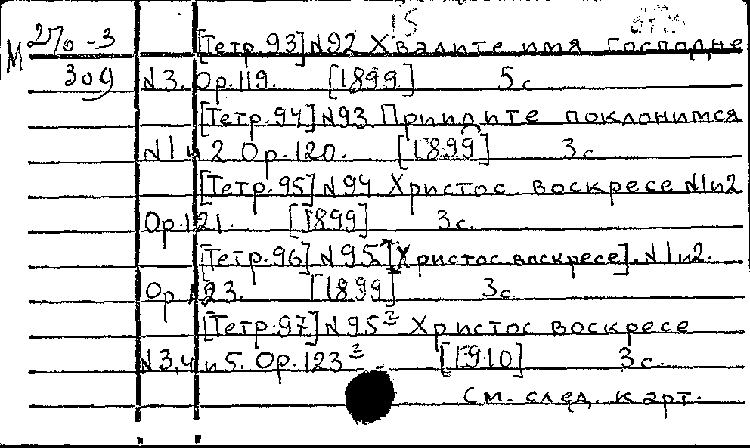 15
М 270-3 [Тетр.93] N92 Хвалите имя Господне
309 N3. Ор.119. [1899] 5 с
[Тетр.94] N93 Приидите поклонимся
N1 и 2 Ор.120. [1899] 3 с
[Тетр.95] N94 Христос воскресе N1 и 2
Ор.121. [1899] 3 с.
[Тетр.96] N95 [Христос воскресе]. N1 и 2.
Ор.123. [1899] 3 с
[Тетр.97] N95² Христос воскресе
N3,4 и 5. Ор.123² [1910] 3 с.
См. след. карт.